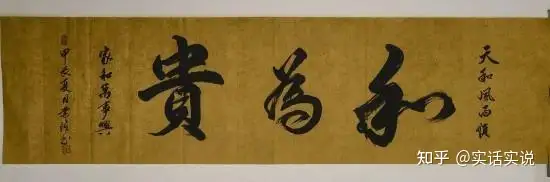 天和風雨順
和為貴
家和萬事興
甲辰夏月
知乎 @实话实说